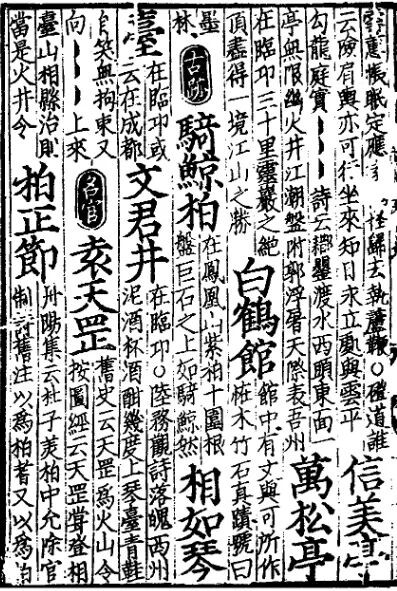 眠定應 怪歸去執 鞭○磴道誰
云險有輿亦可行坐來知日永立處與雲平
信美亭
勾龍庭實 詩云 渡水西頭東面一
亭無限幽火井江潮盤附郭浮屠天際表吾州
萬松亭
在臨邛三十里靈巖之絶
頂盡得一境江山之勝
白鶴館
館中有文與可所作
枯木竹石真蹟號曰
墨
林
古跡
騎鯨柏
在鳳凰山紫柏十圍根
盤巨石之上如騎鯨然
相如琴
臺
在臨邛或
云在成都
文君井
在臨邛○陸務觀詩落魄西州
泥酒杯酒酣幾度上琴臺青鞋
自笑無拘束又
向 上來
名宦
袁天罡
舊史云天罡為火山令
按圖經云天罡嘗登相
臺山相縣治則
當是火井令
柏正節
丹陽集云杜子美柏中允除官
制詩舊注以為柏耆又以為柏